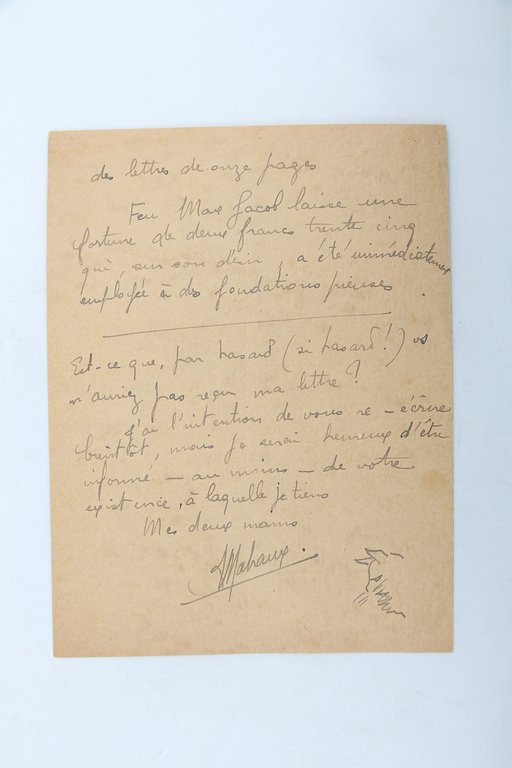 des lettres de onze pages
Feu Max Jacob laisse une
fortune de deux francs trente cinq
qui, sur son désir, a été immédiatement
employée à des fondations pieuses.
Est-ce que, par hasard (si hasard!) vs
n'auriez pas reçu ma lettre?
J'ai l'intention de vous re-écrire
bientôt, mais je serai heureux d'être
informé - au moins - de votre
existence, à laquelle je tiens
Mes deux mains